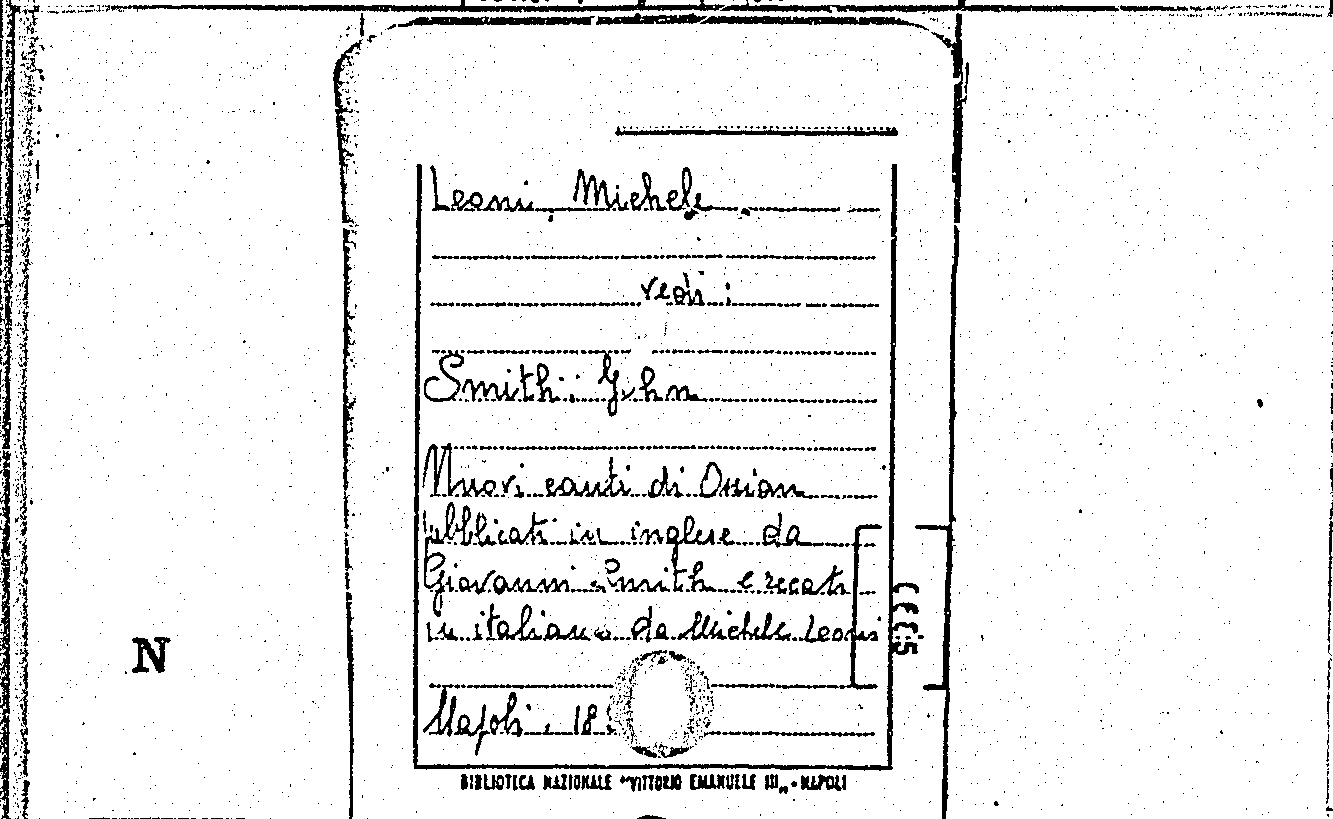 Leoni, Michele.
vedi:
Smith, John
Nuovi canti di Ossian
pubblicati in inglese da
Giovanni Smith e recati
in italiano da Michele Leoni
Napoli, 18
BIBLIOTECA NAZIONALE "VITTORIO EMANUELE III" - NAPOLI
N